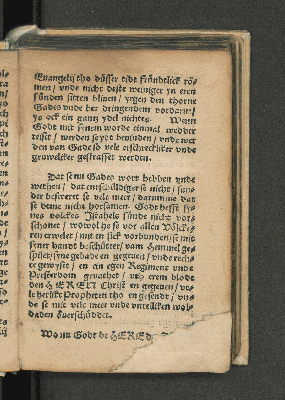 Euangelij tho düsser tidt fründtlick rö-
men / vnde nicht deste weiniger yn eren
sünden sitten bliuen / yegen den thorne
Gades vnde her dringendem vordarn /
ys ock ein gantz ydel nichtes. Wenn
Godt mit synem worde einmal wedder
reiset / werden seynt beuinden / vnde wer
den van Gade so vele erschreckliker vnde
gruwelker gestraffet werden.
Dat se nu Gades wort hebben vnde
wethen / dat entschüldiget se nicht / sun-
der beswert se vele meer / darumme dat
se deme nicht horsamen. Godt heft sy-
nes volckes Israhels sünde nicht vor-
schonet / wowol he se vor allen Völcke-
ren erwelet / mit en sick vorbunden / se mit
sener handt beschüttet / vam hemmel ge-
spiset / syne gebade en gegeuen / vnde rech-
te gewyset / en ein egen Regiment vnde
Presterdom gemaket / vth erem blode
den HEREN Christ en gegeuen / ve-
le herlike Propheten tho en gesendt / vn-
de se mit vele meer vnde untelliken wol-
daden auerschüddet.
Wo nu Godt de HERE